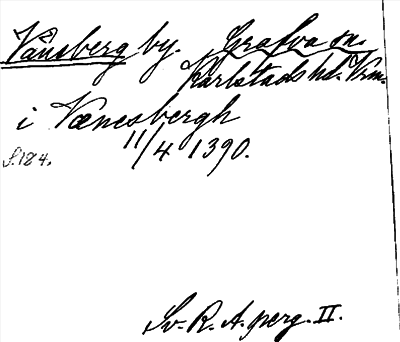 Vänsberg by. Grafva sn.
Karlstads hd. Vrm.
i Vænesbergh
11/4 1390.
S. 184.
Sv. R. A. perg. II.